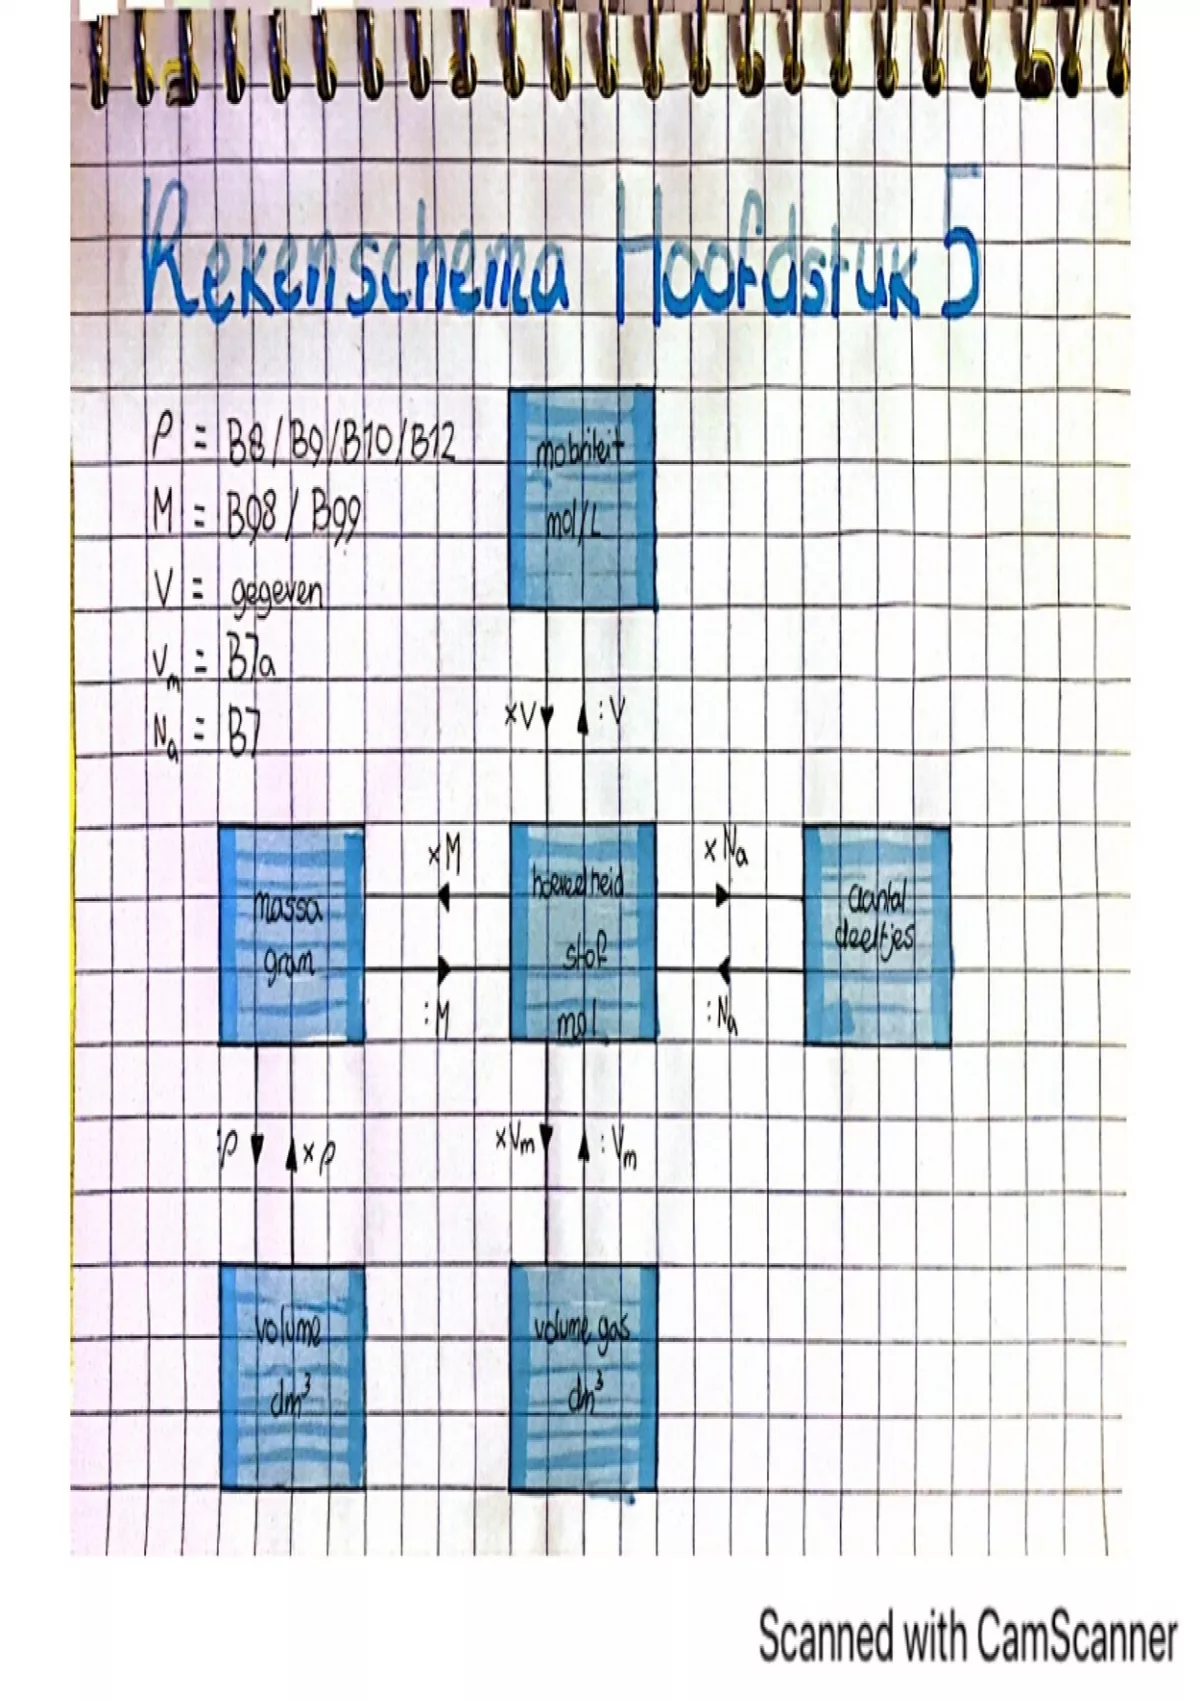 Rekenschema Hoofdstuk 5
ρ = B8/B9/B10/B12
M = B98 / B99
V = gegeven
Vm = B7a
Na = B7
molariteit
mol/L
xV :V
xM
xNa
massa
gram
hoeveelheid
stof
mol
aantal
deeltjes
:M
:Na
:ρ xρ
xVm :Vm
volume
dm³
volume gas
dm³
Scanned with CamScanner